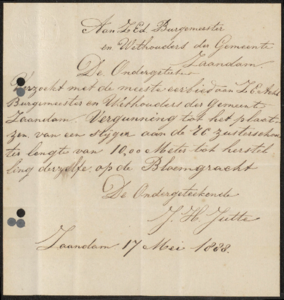 Aan Z.Ed. Burgemeester
en Wethouders der Gemeente
Zaandam
De Ondergetek
Verzoekt met de meeste eerbied aan Z.E. Heer
Burgemeester en Wethouders der Gemeente
Zaandam. Vergunning tot het plaat-
zen van een stijger aan de
ter lengte van 10,00 Meter tot herstel
ling derzelfe, op de Bloemgracht
De Ondergeteekende
J. H. Jutte
Zaandam 17 Mei 1888.